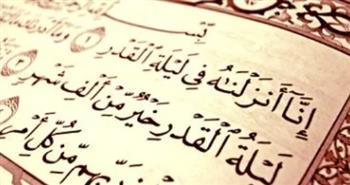 بِسْـ
إِنَّآ أَنزَلْنَٰهُ فِى لَيْلَةِ ٱلْقَدْرِ ١
لَيْلَةُ ٱلْقَدْرِ خَيْرٌ مِّنْ أَلْفِ شَهْرٍ ٣
مِّن كُلِّ أَمْرٍ